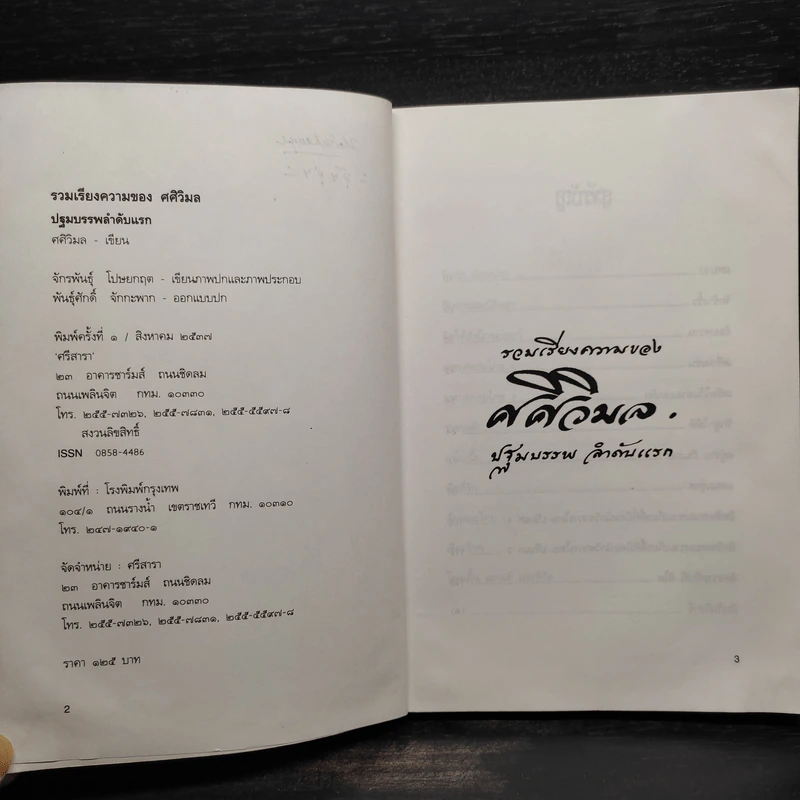 รวมเรียงความของ ศศิวิมล
ปฐมบรรพลำดับแรก
ศศิวิมล - เขียน
จักรพันธุ์ โปษยกฤต - เขียนภาพปกและภาพประกอบ
พันธุ์ศักดิ์ จักกะพาก - ออกแบบปก
พิมพ์ครั้งที่ ๑ / สิงหาคม ๒๕๓๗
'ศรีสารา'
๒๓ อาคารชาร์มส์ ถนนชิดลม
ถนนเพลินจิต กทม. ๑๐๓๓๐
โทร. ๒๕๕-๗๓๒๖, ๒๕๕-๗๘๓๑, ๒๕๕-๕๕๙๗-๘
สงวนลิขสิทธิ์
ISSN 0858-4486
พิมพ์ที่ : โรงพิมพ์กรุงเทพ
๑๐๔/๑ ถนนรางน้ำ เขตราชเทวี กทม. ๑๐๓๑๐
โทร. ๒๔๗-๑๙๔๐-๑
จัดจำหน่าย : ศรีสารา
๒๓ อาคารชาร์มส์ ถนนชิดลม
ถนนเพลินจิต กทม. ๑๐๓๓๐
โทร. ๒๕๕-๗๓๒๖, ๒๕๕-๗๘๓๑, ๒๕๕-๕๕๙๗-๘
ราคา ๑๒๕ บาท
2
รวมเรียงความของ
ศศิวิมล.
ปฐมบรรพ ลำดับแรก
3